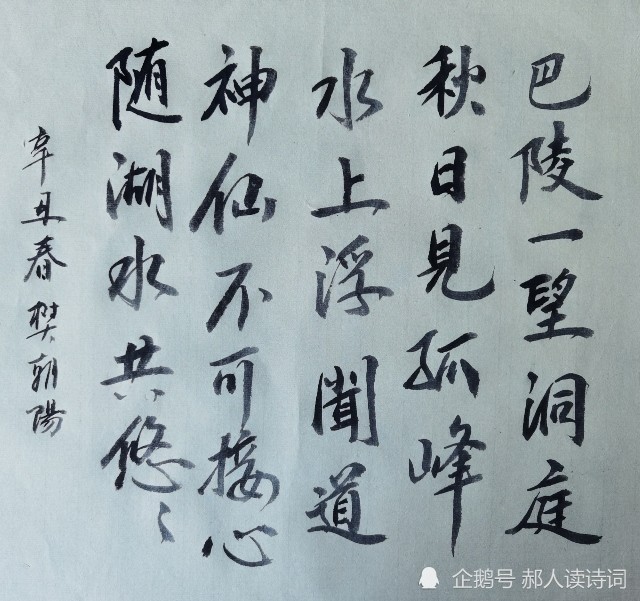 巴陵一望洞庭
秋日見孤峰
水上浮聞道
神仙不可接心
随湖水共悠〻
辛丑春樊朝陽
企鹅号 郝人读诗词